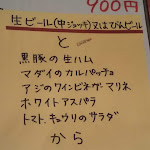 900円
生ビール(中ジョッキ)又はびんビール
と
黒豚の生ハム
マダイのカルパッチョ
アジのワインビネガーマリネ
ホワイトアスパラ
トマト、キュウリのサラダ
から